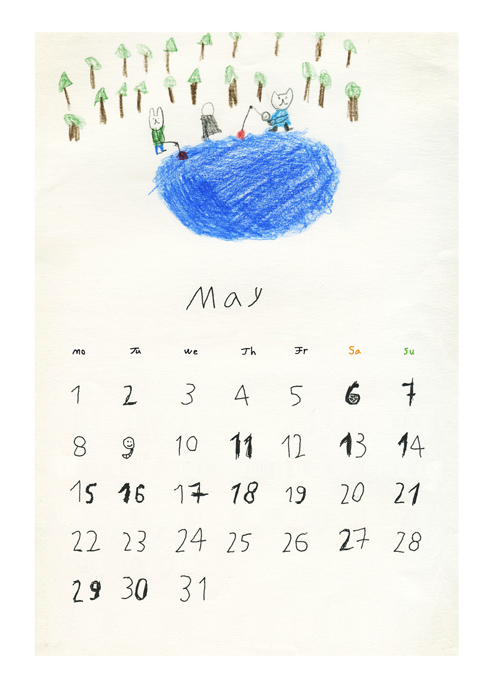 May
mo Tu we Th Fr Sa Su
1 2 3 4 5 6 7
8 9 10 11 12 13 14
15 16 17 18 19 20 21
22 23 24 25 26 27 28
29 30 31